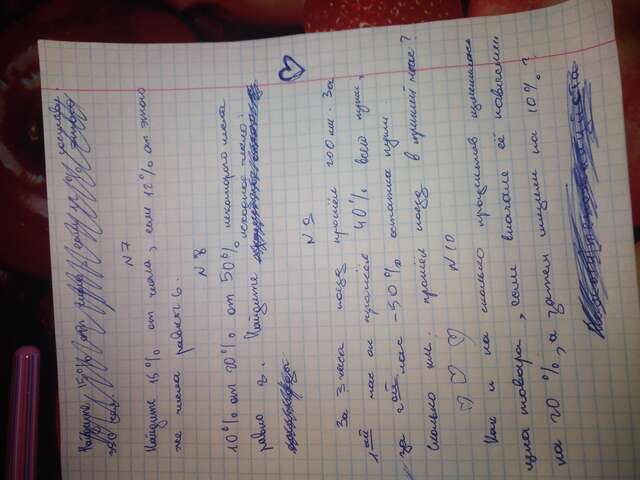 Найдите 15% от числа
№7
Найдите 15% от числа, если 12% от этого
же числа равны 6.
№8
10% от 20% от 50% некоторого числа
равно 2. Найдите исходное число.
№9
За 3 часа поезд прошёл 200 км. За
1ый час он прошёл 40% всего пути,
за 2ой час - 50% остатка пути.
Сколько км. прошёл поезд в третий час?
№10
Как и на сколько процентов изменилась
цена товара, если вначале её повысили
на 20%, а затем снизили на 10%?